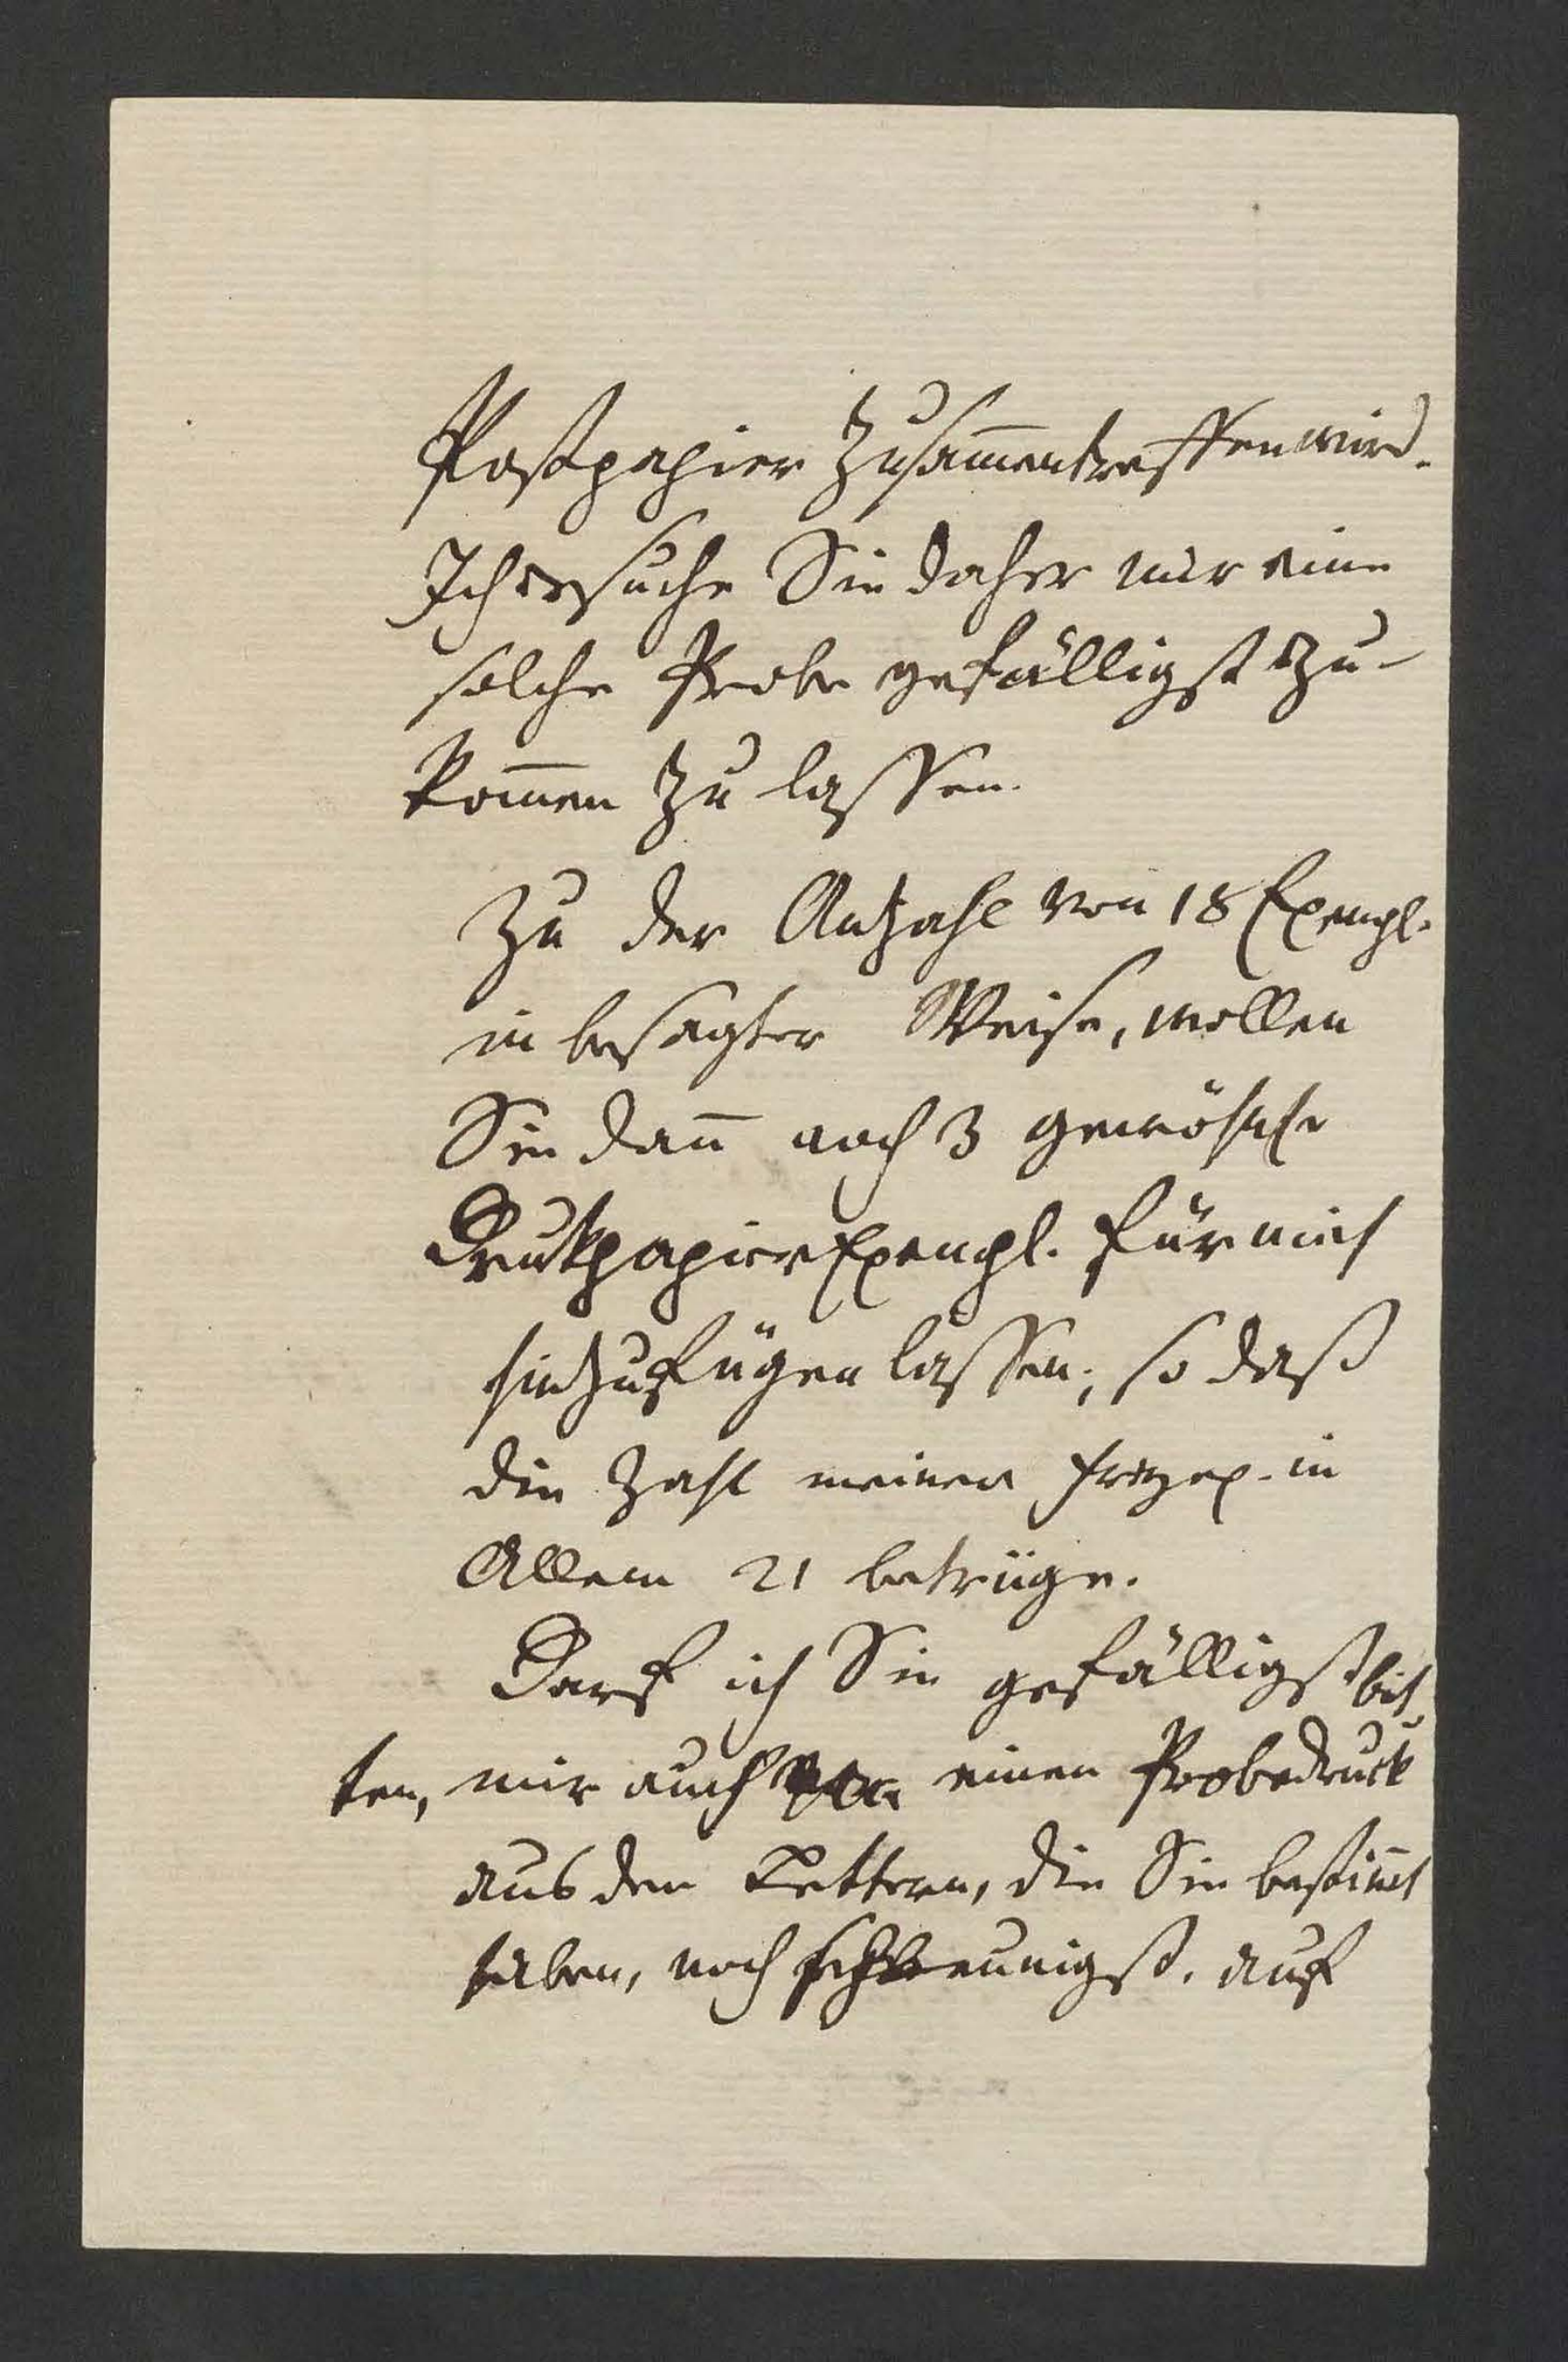 Postpapier zusam̅entreffen wird.
Ich ersuche Sie daher mir eine
solche Probe gefälligst zu-
kom̅en zu lassen.
Zu der Anzahl von 18 Exempl.
in besagter Weise, wollen
Sie dan̅ noch 3 gewöhnl
Drukpapier Exempl. für mich
hinzufügen lassen; so daß
die Zahl meiner Freyex. in
Allem 21 betrüge.
Darf ich Sie gefälligst bit
ten, mir auch einen Probedruck
aus den Lettern, die Sie bestim̅t
haben, noch schleunigst. auf